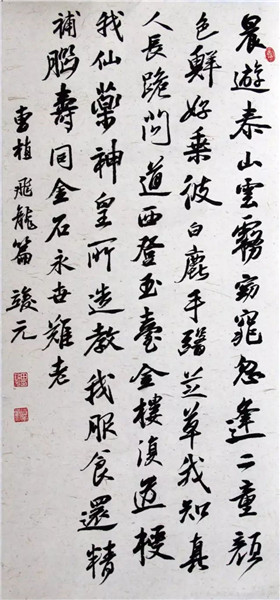 晨遊泰山雲霧窈窕忽逢二童顏
色鮮好乘彼白鹿手翳芝草我知真
人長跪問道西登玉臺金樓復道授
我仙藥神皇所造教我服食還精
補腦壽同金石永世難老
曹植飛龍篇 竣元